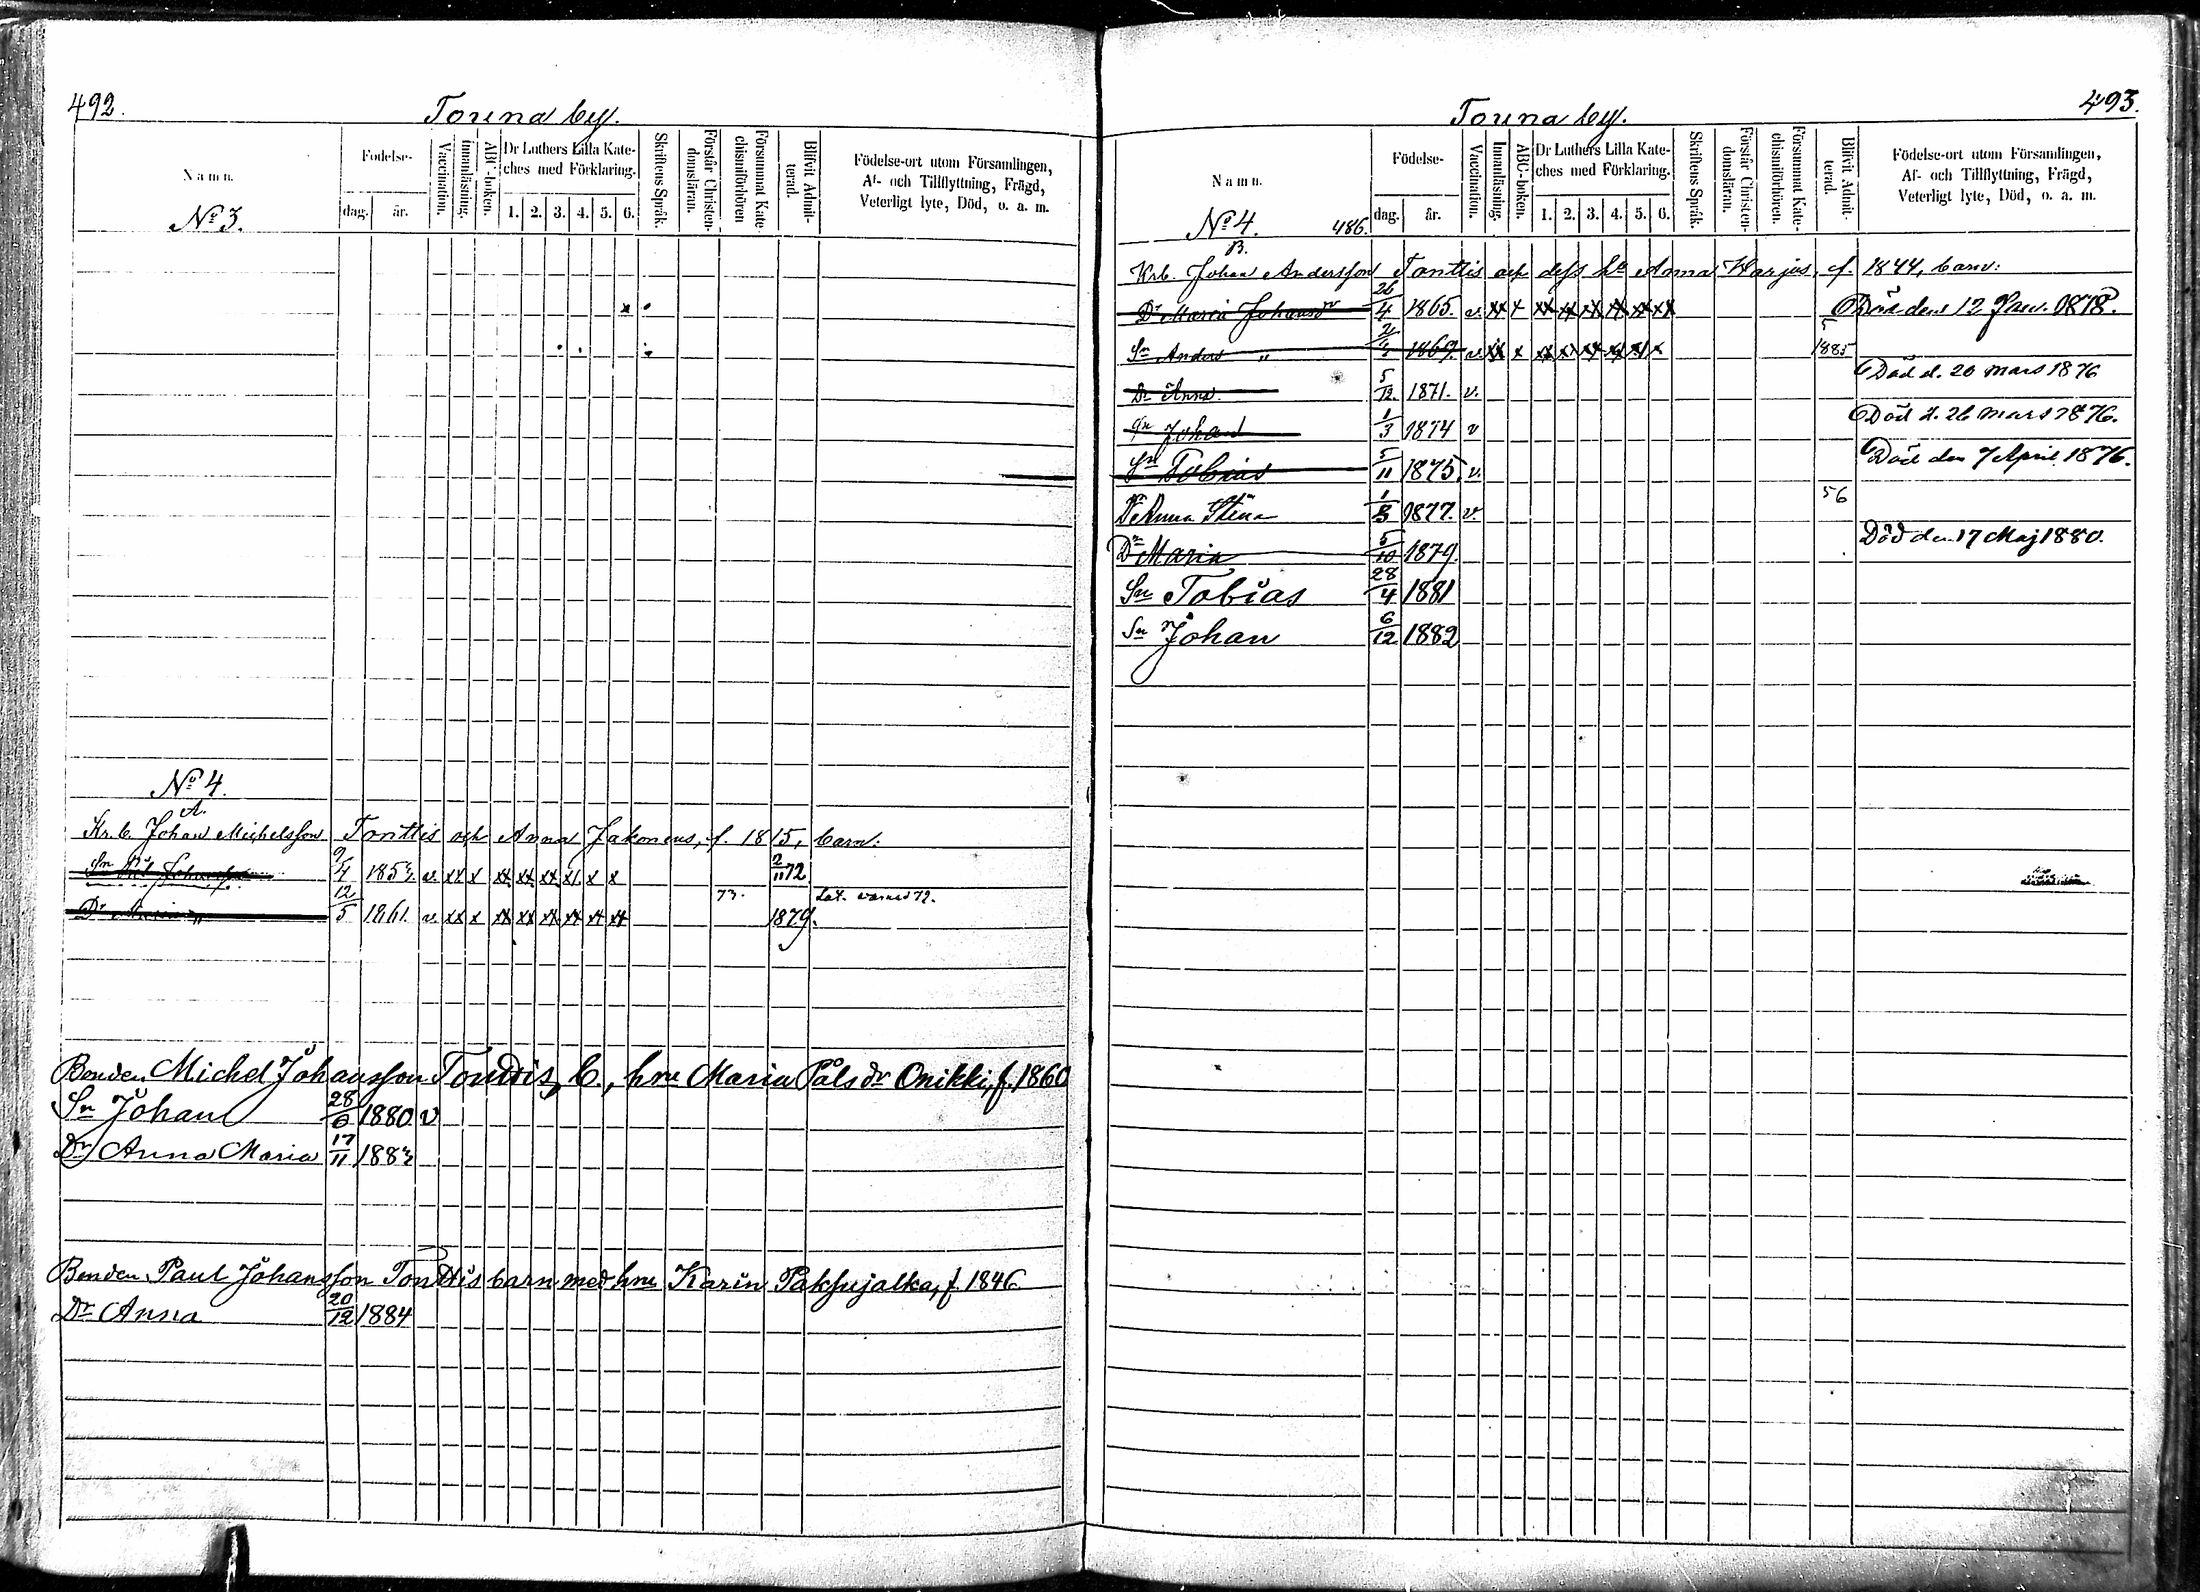 492.
Torina by.
Namn.
Födelse-
dag.
år.
Vaccination.
Innanläsning.
ABC-boken.
Dr Luthers Lilla Kate-
ches med Förklaring.
1. 2. 3. 4. 5. 6.
Skriftens Språk.
Förstår Christen-
domsläran.
Försummat Kate-
chismiförhören
Blifvit Admit-
terad.
Födelse-ort utom Församlingen,
Af- och Tillflyttning, Frägd,
Veterligt lyte, Död, o. a. m.
No 3.
No 4.
A.
Kr. b. Johan Michelsson Tonttis och Anna Jakoneus, f. 1815, barn:
Sn 9/4 1853. v. xx x xx xx xx xx x x 2/11 72
73. Lat. warnad 79.
Dr Maria " 12/5 1861. v. xx x xx xx xx xx xx xx 1879.
Bonden Michel Johansson Tonttis b., hru Maria Påls dr Onikki, f. 1860
Sn Johan 28/6 1880 v
Dr Anna Maria 17/11 1883
Bonden Paul Johansson Tonttis barn med hru Karin Paksujalka, f. 1846
Dr Anna 20/12 1884
493.
Torina by.
Namn.
Födelse-
dag.
år.
Vaccination.
Innanläsning.
ABC-boken.
Dr Luthers Lilla Kate-
ches med Förklaring.
1. 2. 3. 4. 5. 6.
Skriftens Språk.
Förstår Christen-
domsläran.
Försummat Kate-
chismiförhören.
Blifvit Admit-
terad.
Födelse-ort utom Församlingen,
Af- och Tillflyttning, Frägd,
Veterligt lyte, Död, o. a. m.
No 4. 486.
B.
Krb. Johan Andersson Tonttis och dess ha Anna Harjus, f. 1844, barn:
Dr Maria Johansdr 26/4 1865. v. xx x xx xx xx xx xx xx Död den 12 Jan. 1878.
Sn Anders " 1869. v. xx x xx x xx xx xx x 5 1885
Dr Anna 5/12 1871. v. Död d. 20 mars 1876
Sn Johan 1/3 1874 v Död d. 26 mars 1876.
Sn Tobias 5/11 1875. v. Död den 7 April 1876.
Dr Anna Stina 1/3 1877. v. 56
Dr Maria 5/10 1879. Död den 17 Maj 1880.
Sn Tobias 28/4 1881
Sn Johan 6/12 1882